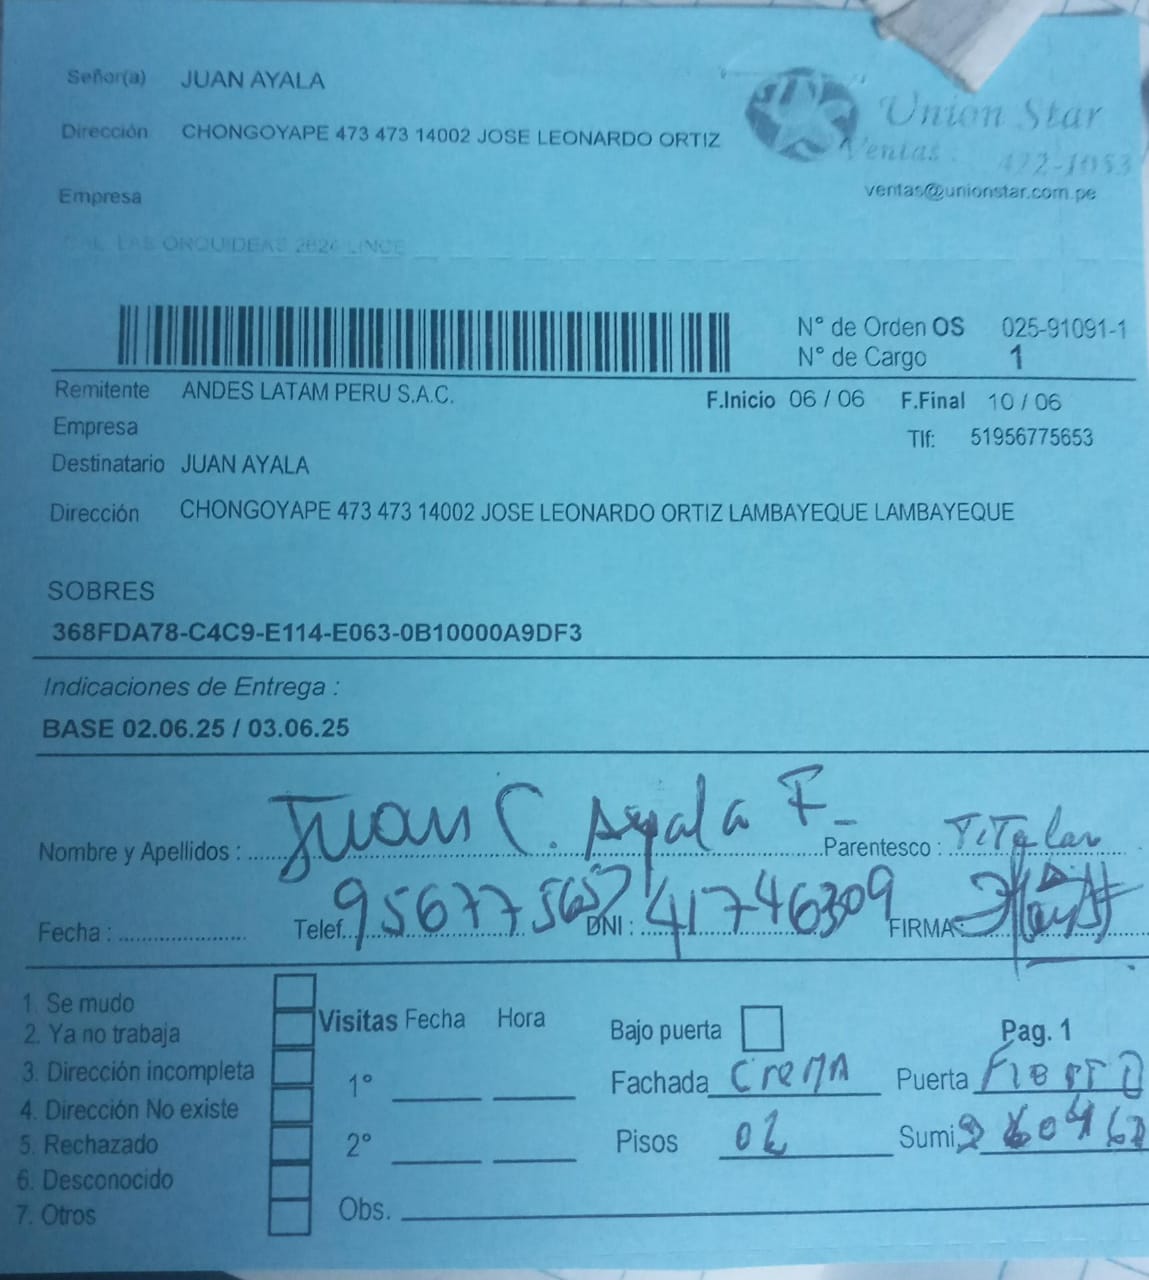 Señor(a) JUAN AYALA
Dirección CHONGOYAPE 473 473 14002 JOSE LEONARDO ORTIZ
Union Star
Ventas : 422-1053
ventas@unionstar.com.pe
Empresa
CAL. LAS ORQUIDEAS 2624 LINCE
N° de Orden OS 025-91091-1
N° de Cargo 1
Remitente ANDES LATAM PERU S.A.C.
F.Inicio 06 / 06 F.Final 10 / 06
Empresa
Tlf: 51956775653
Destinatario JUAN AYALA
Dirección CHONGOYAPE 473 473 14002 JOSE LEONARDO ORTIZ LAMBAYEQUE LAMBAYEQUE
SOBRES
368FDA78-C4C9-E114-E063-0B10000A9DF3
Indicaciones de Entrega :
BASE 02.06.25 / 03.06.25
Nombre y Apellidos : Juan C. Ayala F. Parentesco : Titular
Fecha : Telef. DNI : 41746309 FIRMA:
1. Se mudo
2. Ya no trabaja
3. Dirección incompleta
4. Dirección No existe
5. Rechazado
6. Desconocido
7. Otros
Visitas Fecha Hora
1°
2°
Obs.
Bajo puerta Pag. 1
Fachada CREMA Puerta FIERRO
Pisos 02 Sumi